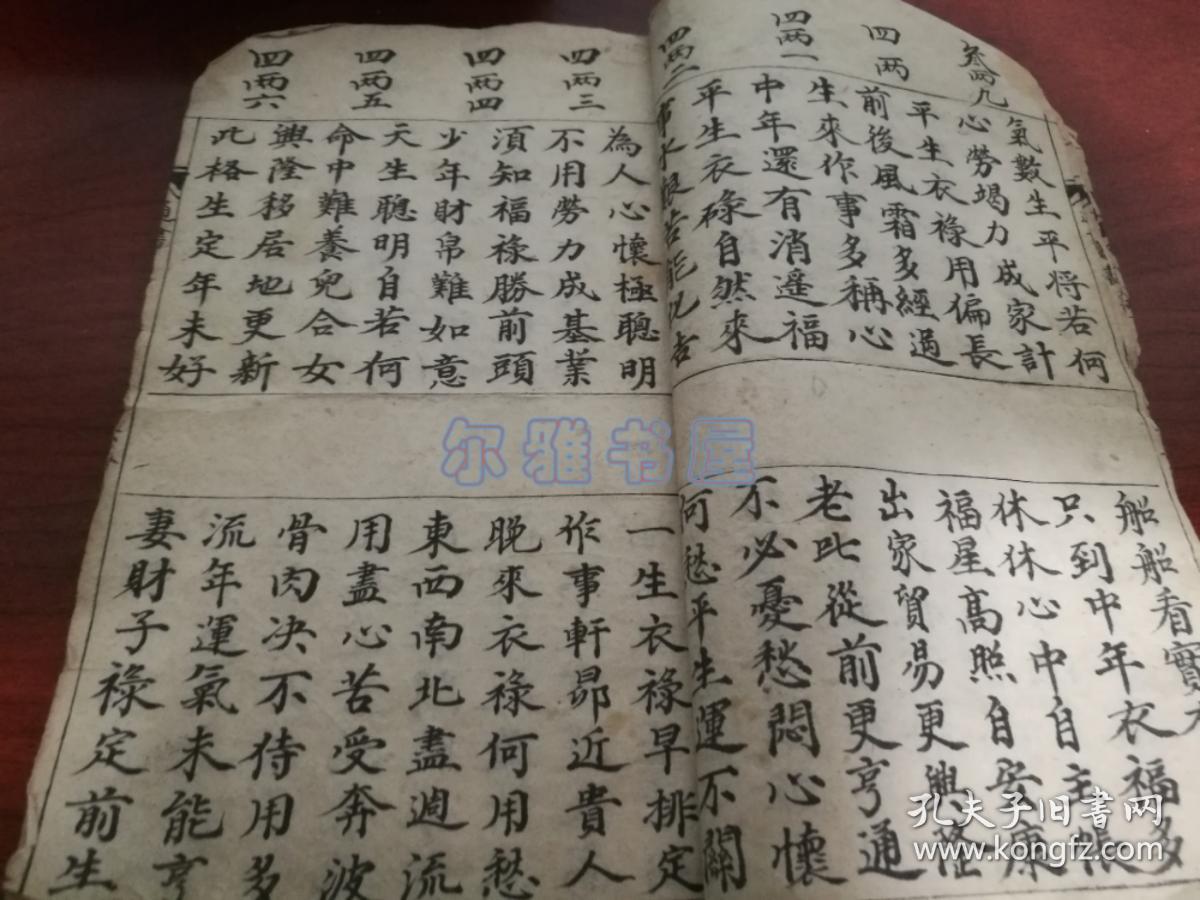 叁两九
四两
四两一
四两二
氣數生平將若何
心勞竭力成家計
平生衣祿用偏長
前後風霜多經過
生來作事多稱心
中年還有消遥福
平生衣碌自然來
船船看
只到中年衣福多
休休心中自主帳
福星高照自安康
出家貿易更興隆
老此從前更亨通
不必憂愁悶心懷
何愁平生運不關
四两三
四两四
四两五
四两六
為人心懷極聰明
不用勞力成基業
須知福祿勝前頭
少年財帛難如意
天生聰明自若何
命中難養兒合女
興隆移居地更新
此格生定年未好
一生衣祿早排定
作事軒昂近貴人
晚來衣祿何用愁
東西南北盡週流
用盡心苦受奔波
骨肉决不待用多
流年運氣未能亨
妻財子祿定前生
尔雅书屋
孔夫子旧书网
www.kongfz.com